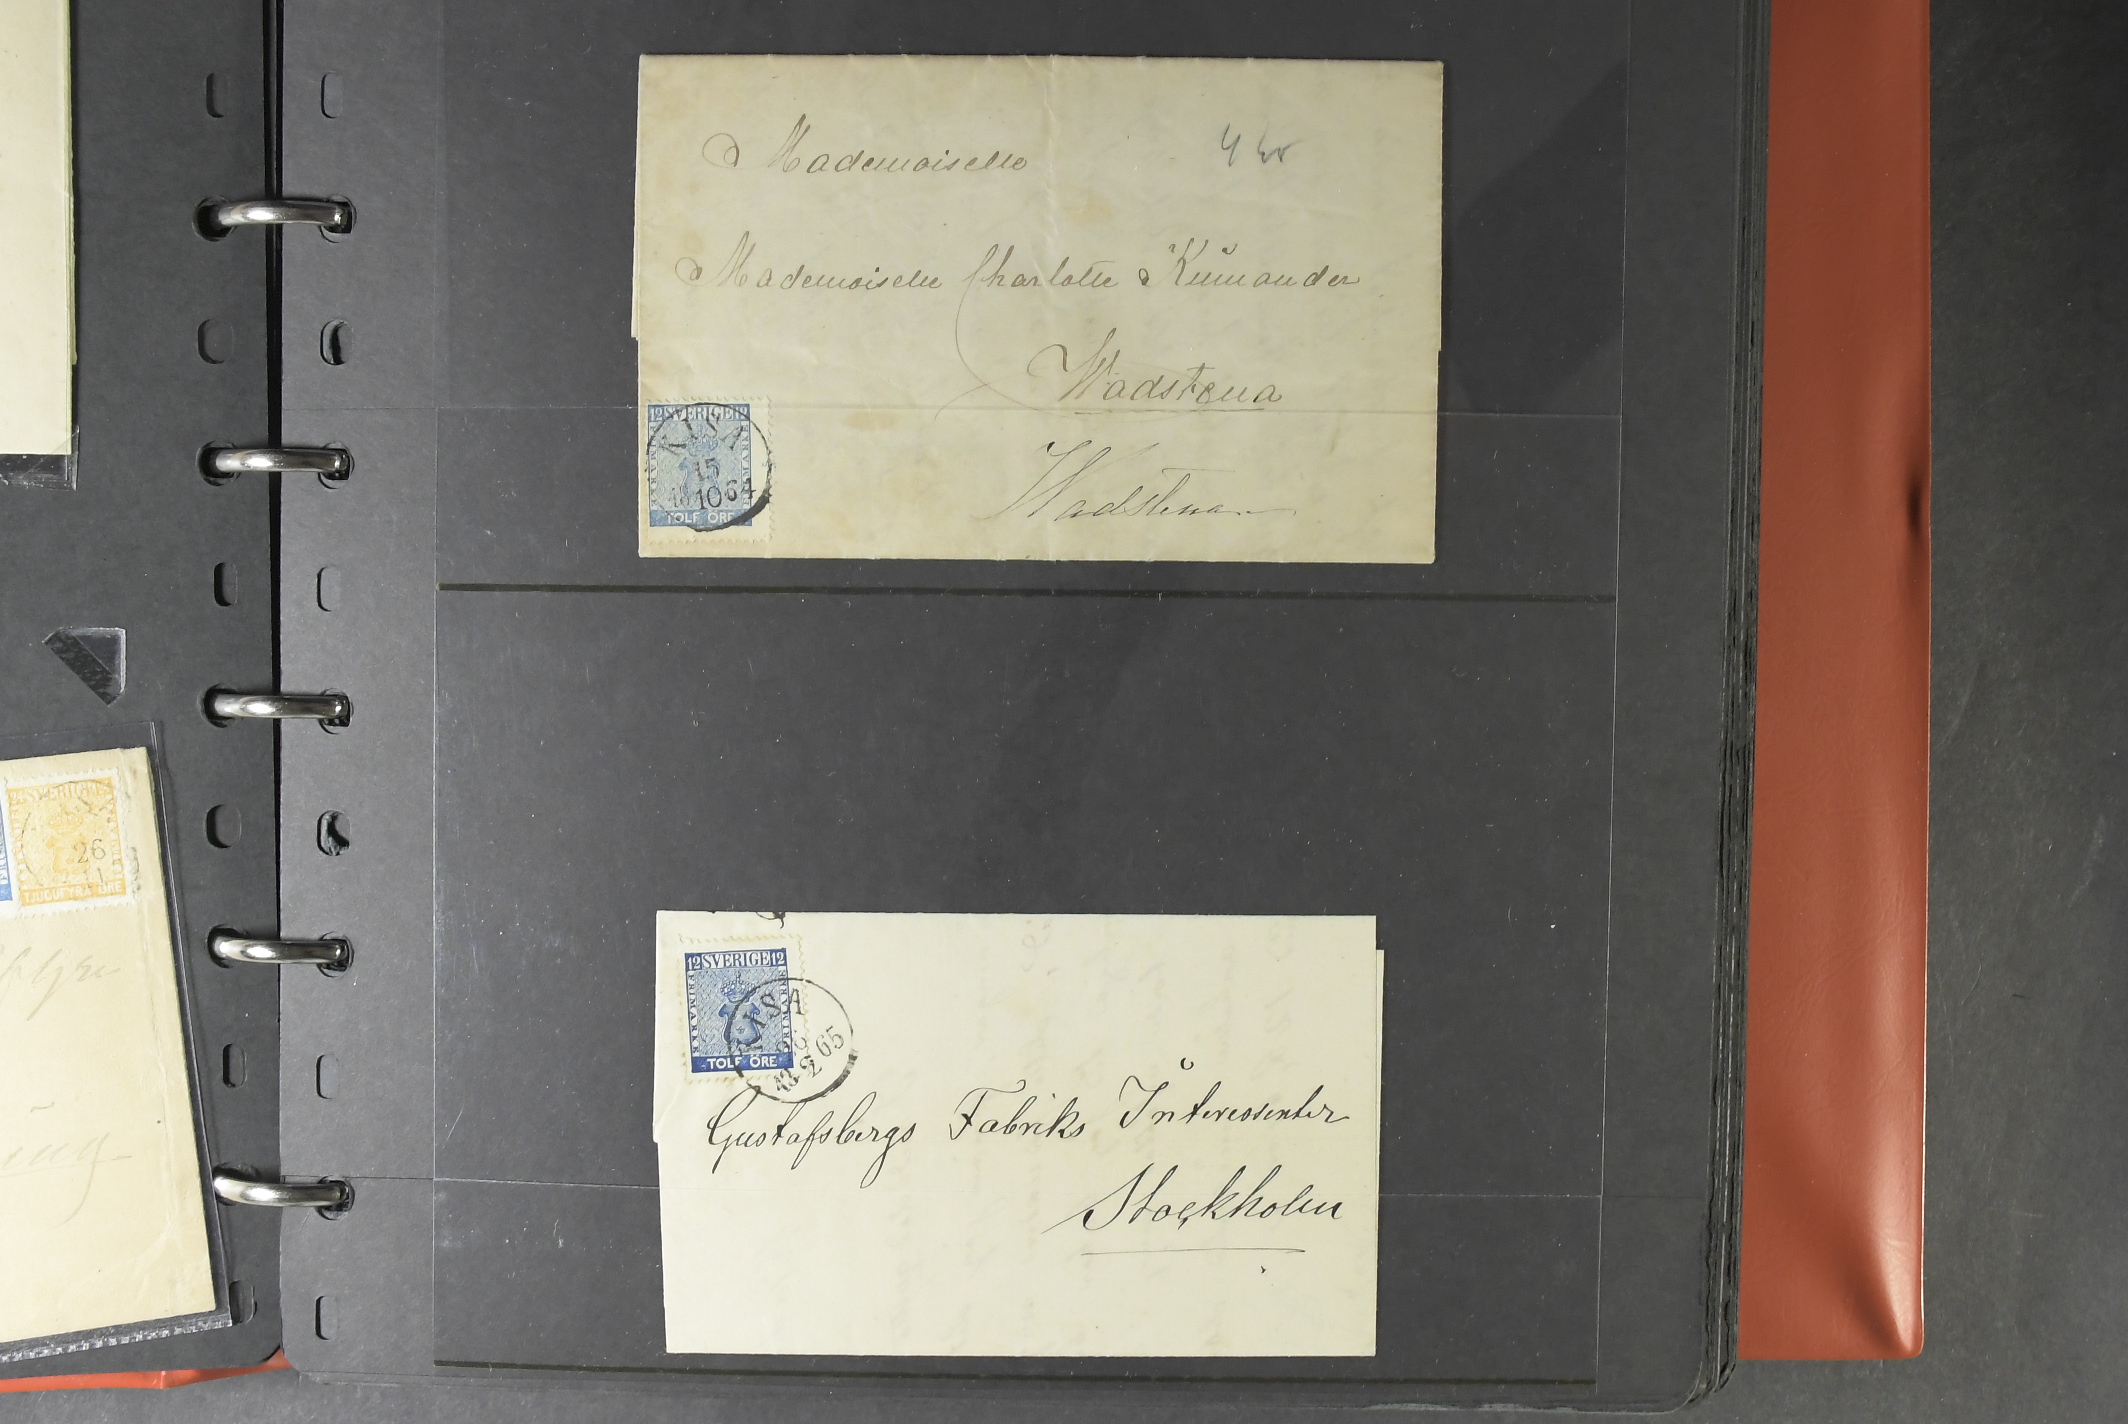 Mademoiselle
Mademoiselle Charlotte Kumander
Wadstena
Wadstena
12 SVERIGE 12
FRIMÄRKE
FRIMÄRKE
TOLF ÖRE
KISA
15
10 64
12 SVERIGE 12
FRIMÄRKE
FRIMÄRKE
TOLF ÖRE
KISA
2 65
Gustafsbergs Fabriks Interessenter
Stockholm
24 SVERIGE
TJUGUFYRA ÖRE
26
1